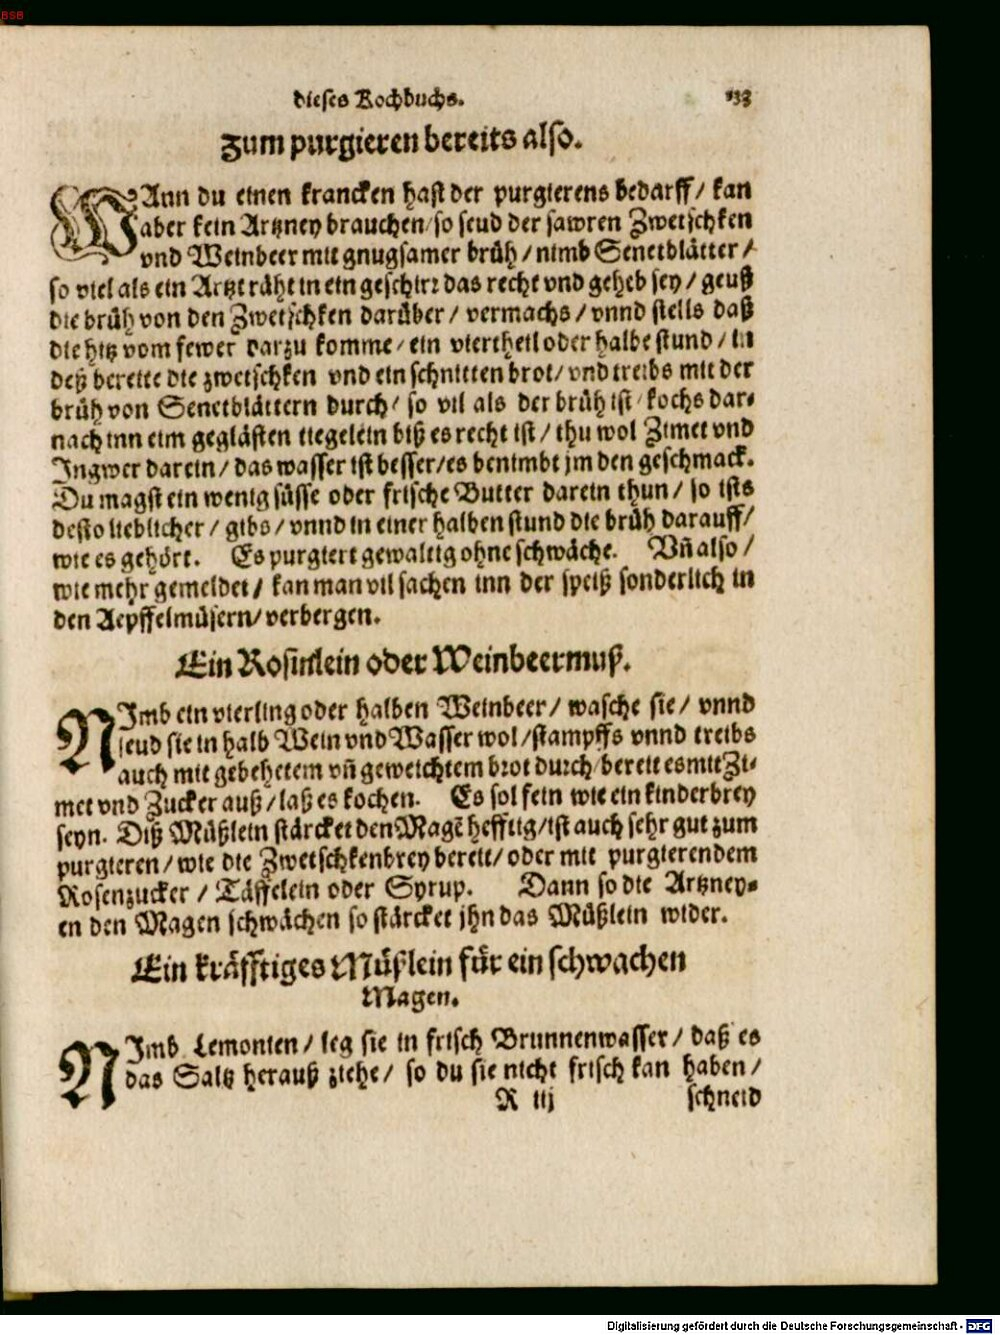 BSB
dieses Kochbuchs. 133
Zum purgieren bereits also.
WAnn du einen krancken hast der purgierens bedarff / kan
aber kein Artzney brauchen / so seud der sawren Zwetschken
vnd Weinbeer mit gnugsamer brüh / nimb Senetblätter /
so viel als ein Artzt räht in ein geschirr das recht vnd geheb sey / geust
die brüh von den Zwetschken darüber / vermachs / vnnd stells daß
die hitz vom fewer darzu komme / ein viertheil oder halbe stund / in
deß bereite die zwetschken vnd ein schnitten brot / vnd treibs mit der
brüh von Senetblättern durch / so vil als der brüh ist / kochs dar⸗
nach inn eim geglästen tiegelein biß es recht ist / thu wol Zimet vnd
Ingwer darein / das wasser ist besser / es benimbt jm den geschmack.
Du magst ein wenig süsse oder frische Butter darein thun / so ists
desto lieblicher / gibs / vnnd in einer halben stund die brüh darauff /
wie es gehört. Es purgiert gewaltig ohne schwäche. Vñ also /
wie mehr gemeldet / kan man vil sachen inn der speiß sonderlich in
den Aepffelmüsern / verbergen.
Ein Rosinlein oder Weinbeermuß.
NImb ein vierling oder halben Weinbeer / wasche sie / vnnd
seud sie in halb Wein vnd Wasser wol / stampffs vnnd treibs
auch mit gebehetem vñ geweichtem brot durch / bereit es mit Zi⸗
met vnd Zucker auß / laß es kochen. Es sol sein wie ein kinderbrey
seyn. Diß Müßlein stärcket den Magẽ hefftig / ist auch sehr gut zum
purgieren / wie die Zwetschkenbrey bereit / oder mit purgierendem
Rosenzucker / Täffelein oder Syrup. Dann so die Artzney⸗
en den Magen schwächen so stärcket jhn das Müßlein wider.
Ein kräfftiges Müßlein für ein schwachen
Magen.
NImb Lemonien / leg sie in frisch Brunnenwasser / daß es
das Saltz herauß ziehe / so du sie nicht frisch kan haben /
R iij schneid
Digitalisierung gefördert durch die Deutsche Forschungsgemeinschaft - DFG